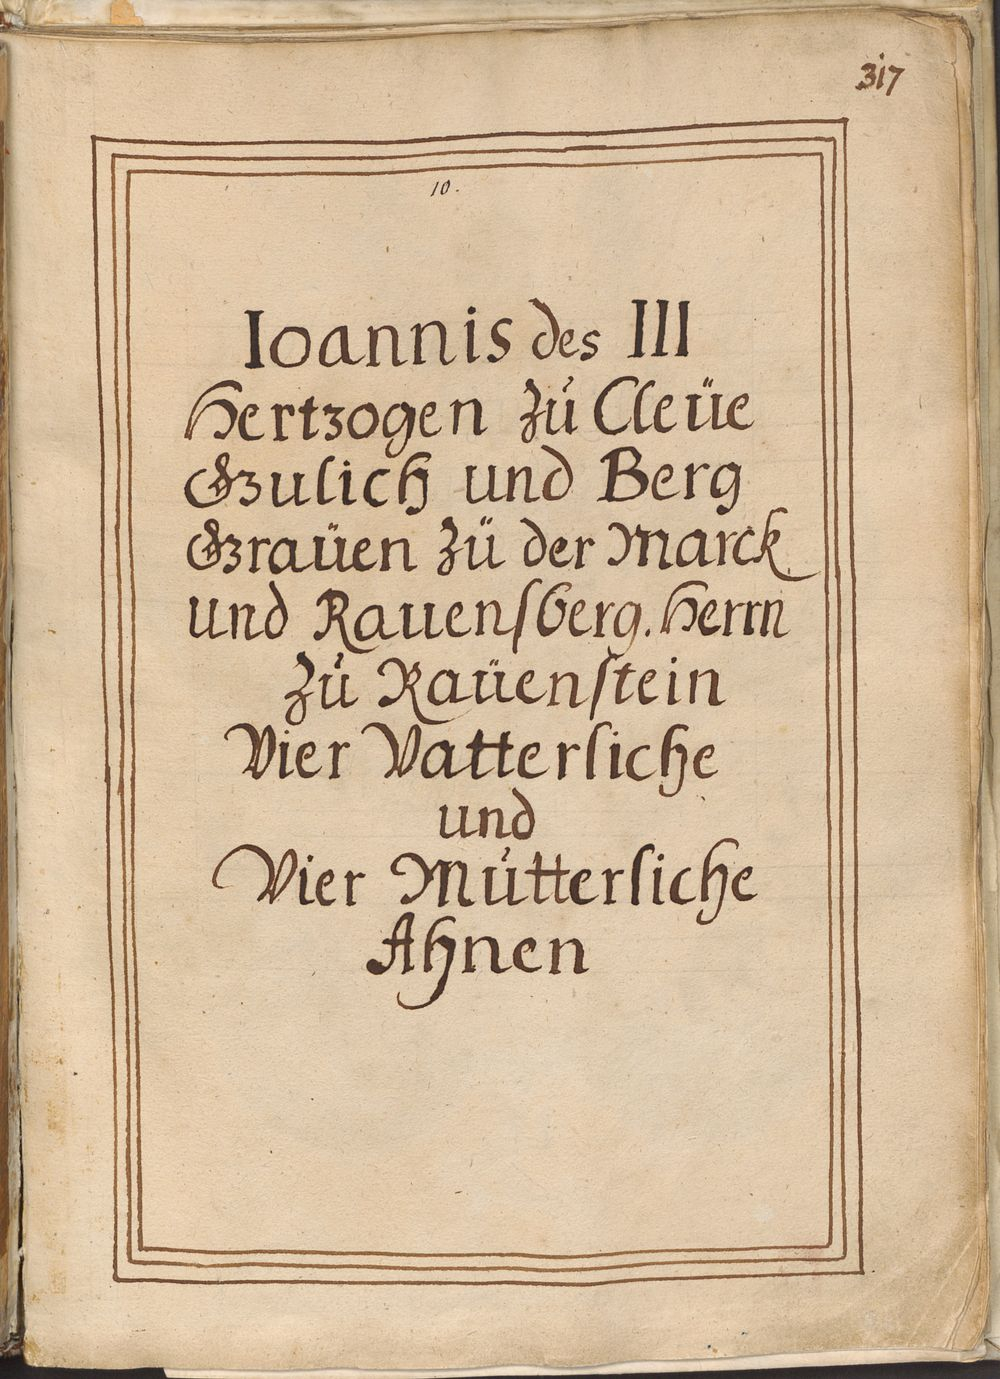 317
10.
Ioannis des III
Hertzogen zú Cleüe
Gulich und Berg
Graüen zü der Marck
und Rauensberg. Herrn
zú Raüenstein
Vier Vatterliche
und
Vier Mútterliche
Ahnen